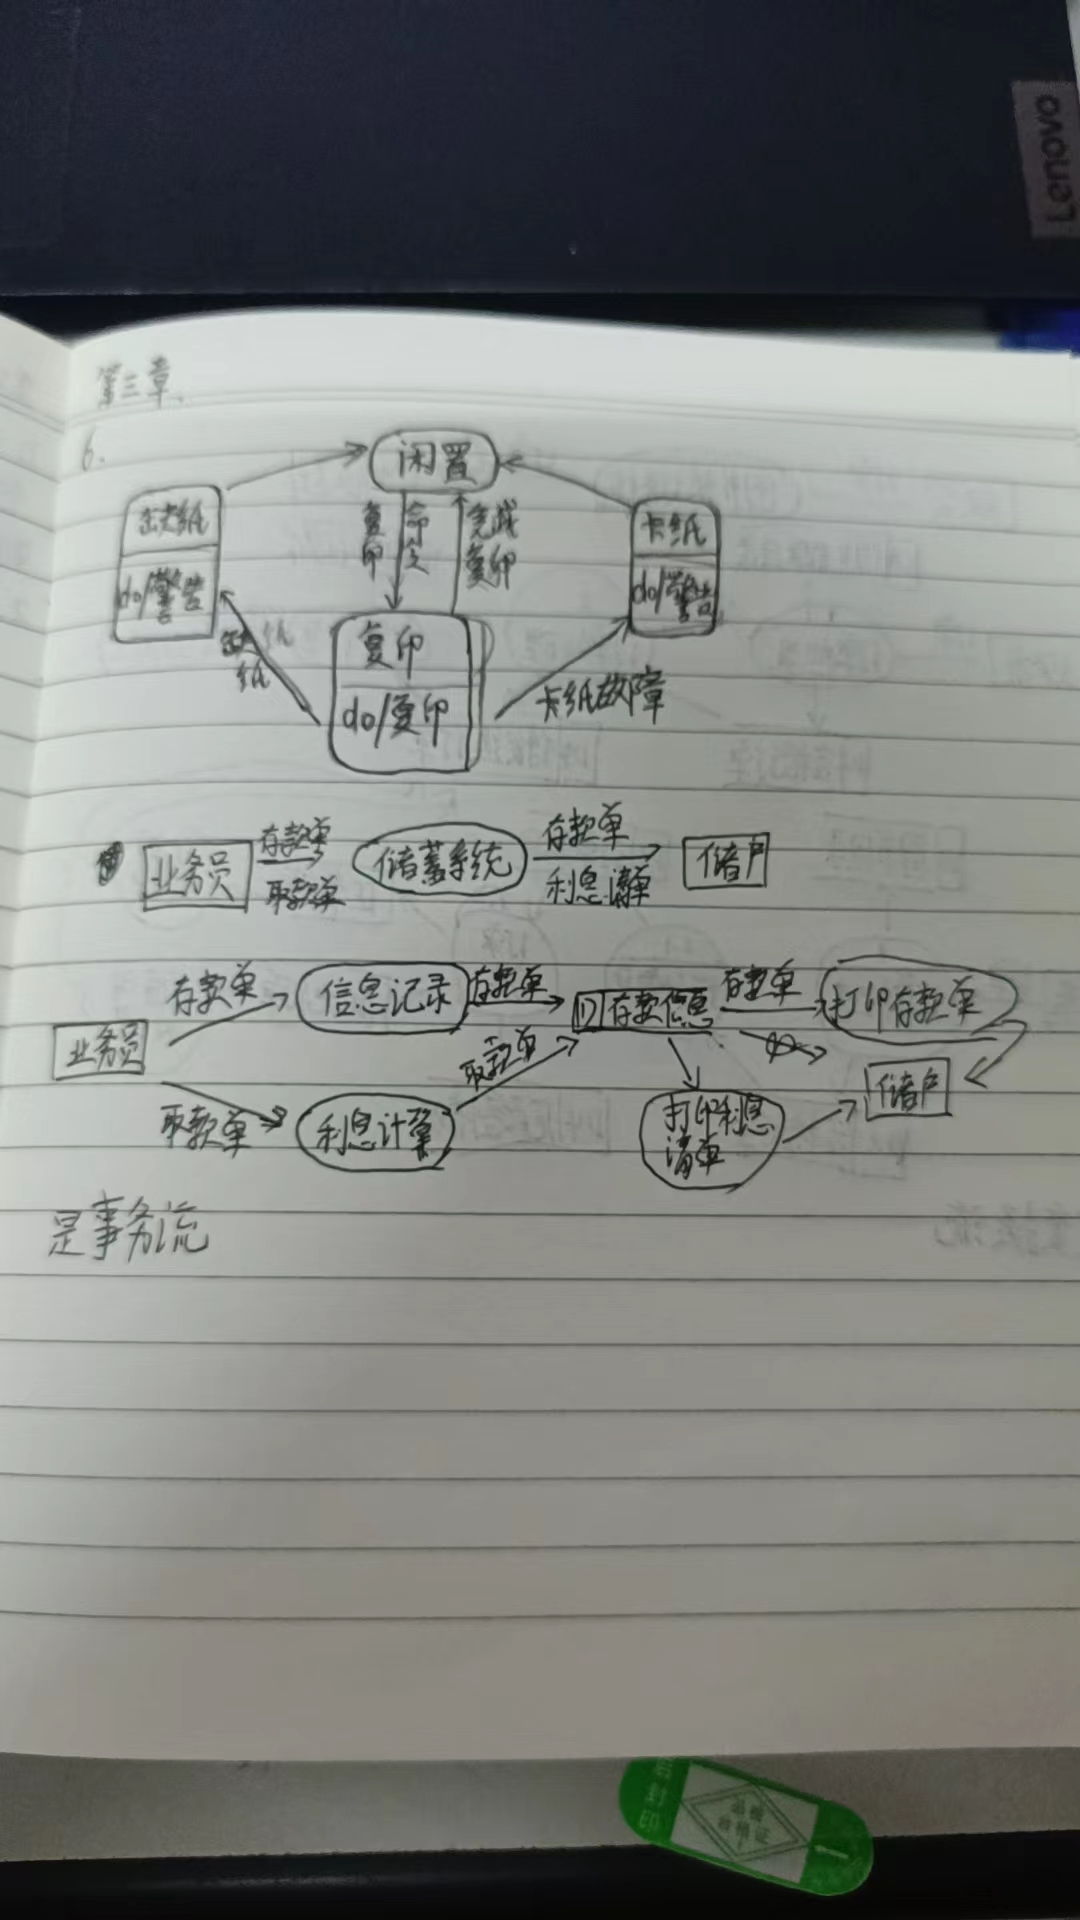 Lenovo
第三章.
6.
闲置
缺纸
do/警告
复印命令
完成复印
卡纸
do/警告
缺纸
复印
do/复印
卡纸故障
业务员
存款单
取款单
储蓄系统
存款单
利息清单
储户
存款单
信息记录
存款单
D 存款信息
存款单
打印存款单
业务员
取款单
储户
取款单
利息计算
打印利息
清单
是事务流
1